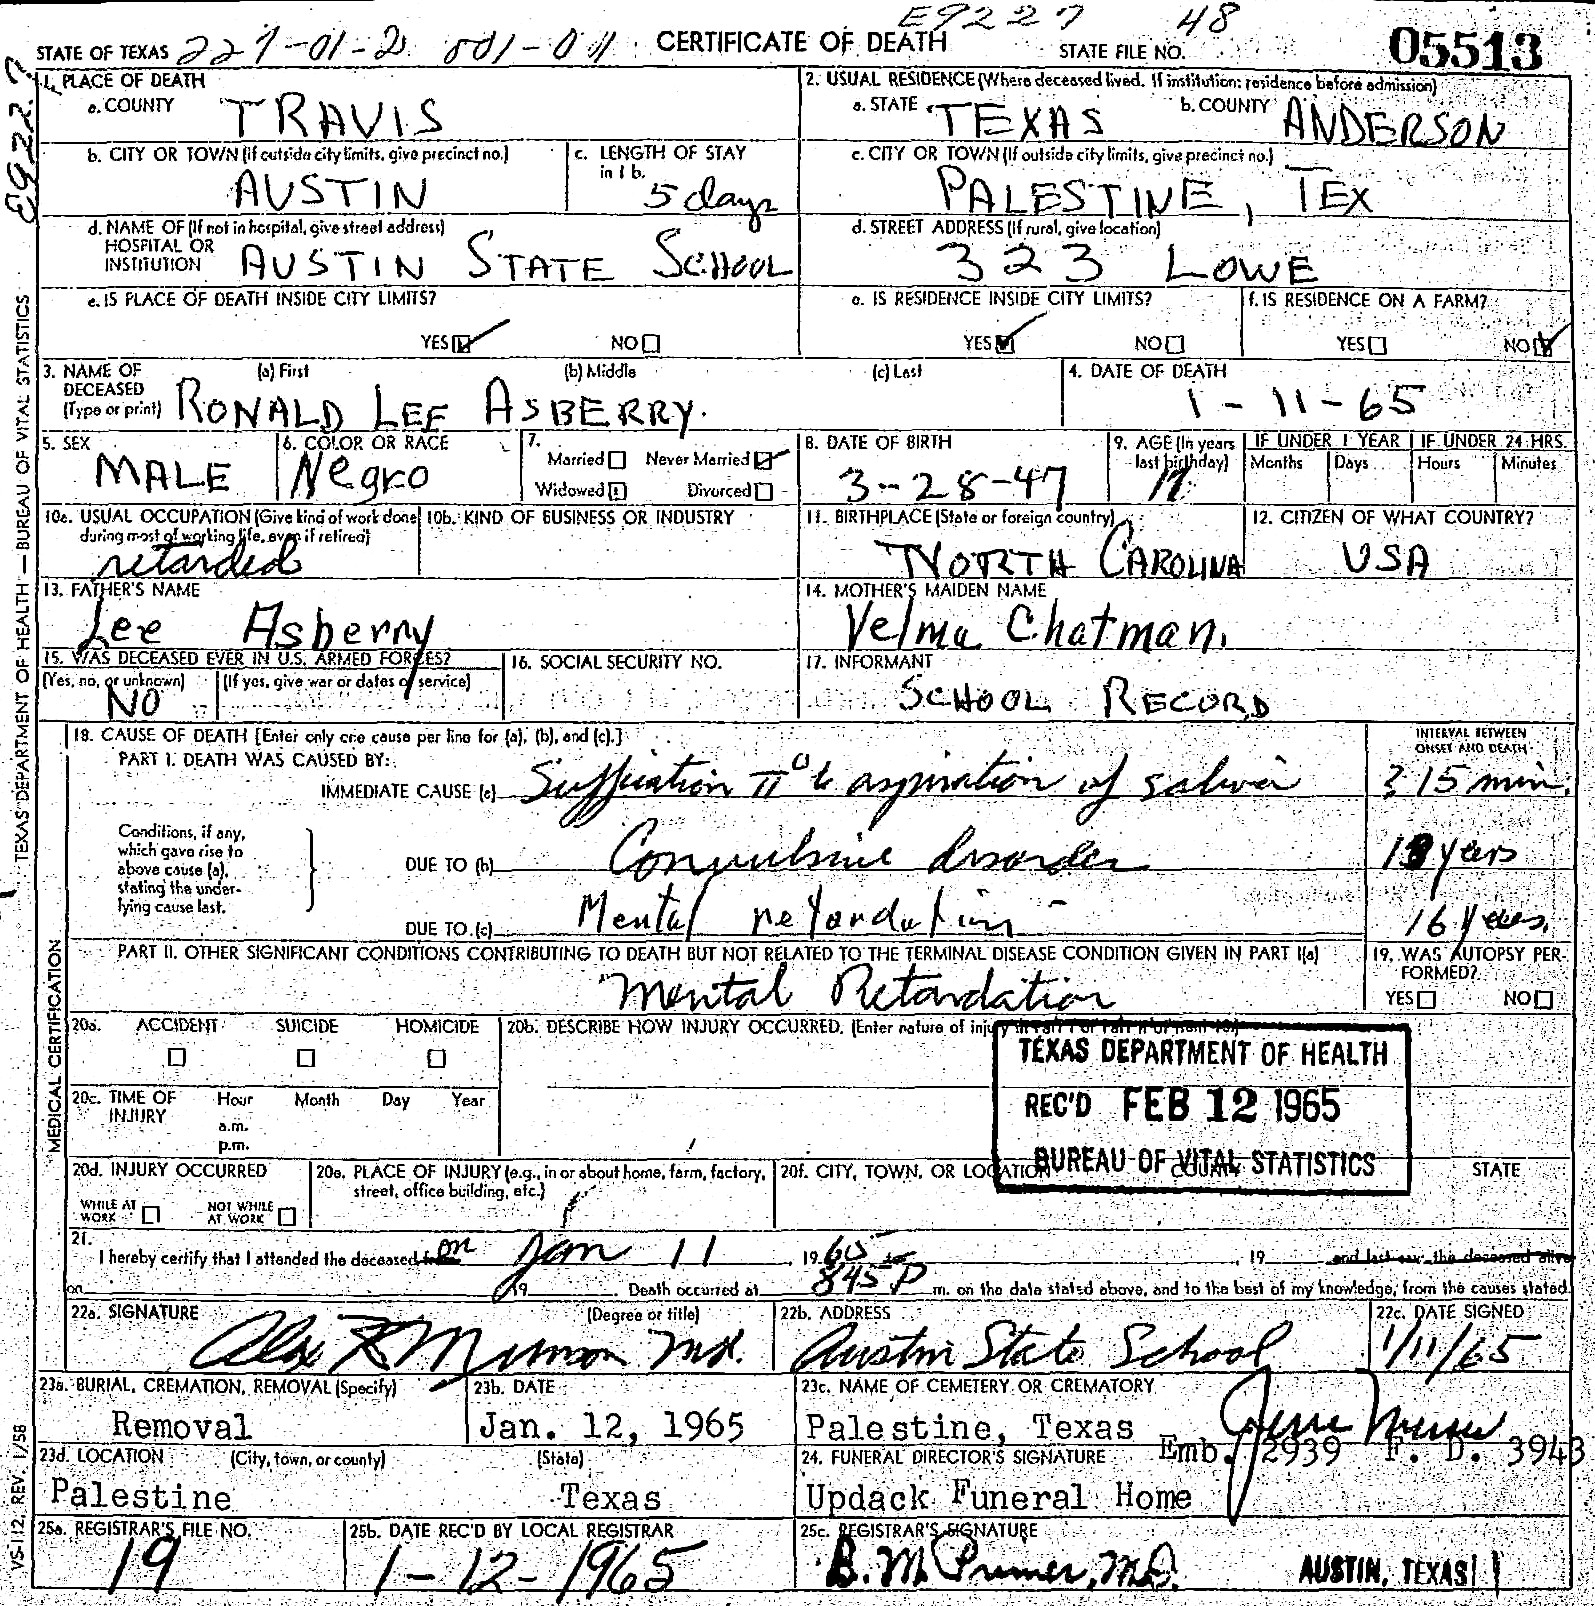 E9227 48
STATE OF TEXAS 227-01-2 001-01 CERTIFICATE OF DEATH STATE FILE NO. 05513
E9227
TEXAS DEPARTMENT OF HEALTH — BUREAU OF VITAL STATISTICS
1. PLACE OF DEATH
a. COUNTY TRAVIS
2. USUAL RESIDENCE (Where deceased lived. If institution: residence before admission)
a. STATE TEXAS b. COUNTY ANDERSON
b. CITY OR TOWN (If outside city limits, give precinct no.) AUSTIN
c. LENGTH OF STAY in 1 b. 5 days
c. CITY OR TOWN (If outside city limits, give precinct no.) PALESTINE, TEX
d. NAME OF (If not in hospital, give street address)
HOSPITAL OR
INSTITUTION AUSTIN STATE SCHOOL
d. STREET ADDRESS (If rural, give location) 323 LOWE
e. IS PLACE OF DEATH INSIDE CITY LIMITS?
YES NO
e. IS RESIDENCE INSIDE CITY LIMITS?
YES NO
f. IS RESIDENCE ON A FARM?
YES NO
3. NAME OF DECEASED (Type or print) (a) First (b) Middle (c) Last
RONALD LEE ASBERRY.
4. DATE OF DEATH 1-11-65
5. SEX MALE
6. COLOR OR RACE Negro
7. Married Never Married
Widowed Divorced
8. DATE OF BIRTH 3-28-47
9. AGE (In years last birthday) 17
IF UNDER 1 YEAR Months Days
IF UNDER 24 HRS. Hours Minutes
10a. USUAL OCCUPATION (Give kind of work done during most of working life, even if retired) retarded
10b. KIND OF BUSINESS OR INDUSTRY
11. BIRTHPLACE (State or foreign country) NORTH CAROLINA
12. CITIZEN OF WHAT COUNTRY? USA
13. FATHER'S NAME Lee Asberry
14. MOTHER'S MAIDEN NAME Velma Chatman.
15. WAS DECEASED EVER IN U.S. ARMED FORCES?
(Yes, no, or unknown) (If yes, give war or dates of service)
NO
16. SOCIAL SECURITY NO.
17. INFORMANT SCHOOL RECORD
MEDICAL CERTIFICATION
18. CAUSE OF DEATH [Enter only one cause per line for (a), (b), and (c).]
INTERVAL BETWEEN ONSET AND DEATH
PART I. DEATH WAS CAUSED BY:
IMMEDIATE CAUSE (a) Suffication II° to aspiration of saliva ? 15 min.
Conditions, if any, which gave rise to above cause (a), stating the underlying cause last.
DUE TO (b) Convulsive disorder years
DUE TO (c) Mental retardation 16 years.
PART II. OTHER SIGNIFICANT CONDITIONS CONTRIBUTING TO DEATH BUT NOT RELATED TO THE TERMINAL DISEASE CONDITION GIVEN IN PART I(a)
Mental Retardation
19. WAS AUTOPSY PERFORMED?
YES NO
20a. ACCIDENT SUICIDE HOMICIDE
20b. DESCRIBE HOW INJURY OCCURRED. (Enter nature of injury in Part I or Part II of item 18.)
TEXAS DEPARTMENT OF HEALTH
REC'D FEB 12 1965
BUREAU OF VITAL STATISTICS
20c. TIME OF INJURY Hour Month Day Year
a.m.
p.m.
20d. INJURY OCCURRED
WHILE AT WORK NOT WHILE AT WORK
20e. PLACE OF INJURY (e.g., in or about home, farm, factory, street, office building, etc.)
20f. CITY, TOWN, OR LOCATION COUNTY STATE
21. I hereby certify that I attended the deceased from on Jan 11 1965 to , 19 and last saw the deceased alive
on , 19 Death occurred at 845 P m. on the date stated above, and to the best of my knowledge, from the causes stated.
22a. SIGNATURE (Degree or title) Alex K Munson M.D.
22b. ADDRESS Austin State School
22c. DATE SIGNED 1/11/65
23a. BURIAL, CREMATION, REMOVAL (Specify) Removal
23b. DATE Jan. 12, 1965
23c. NAME OF CEMETERY OR CREMATORY Palestine, Texas
23d. LOCATION (City, town, or county) (State)
Palestine Texas
24. FUNERAL DIRECTOR'S SIGNATURE Emb. 2939 F. D. 3943
Updack Funeral Home
25a. REGISTRAR'S FILE NO. 19
25b. DATE REC'D BY LOCAL REGISTRAR 1-12-1965
25c. REGISTRAR'S SIGNATURE B. M. Primer, M.D. AUSTIN, TEXAS
VS-112, REV. 1/58